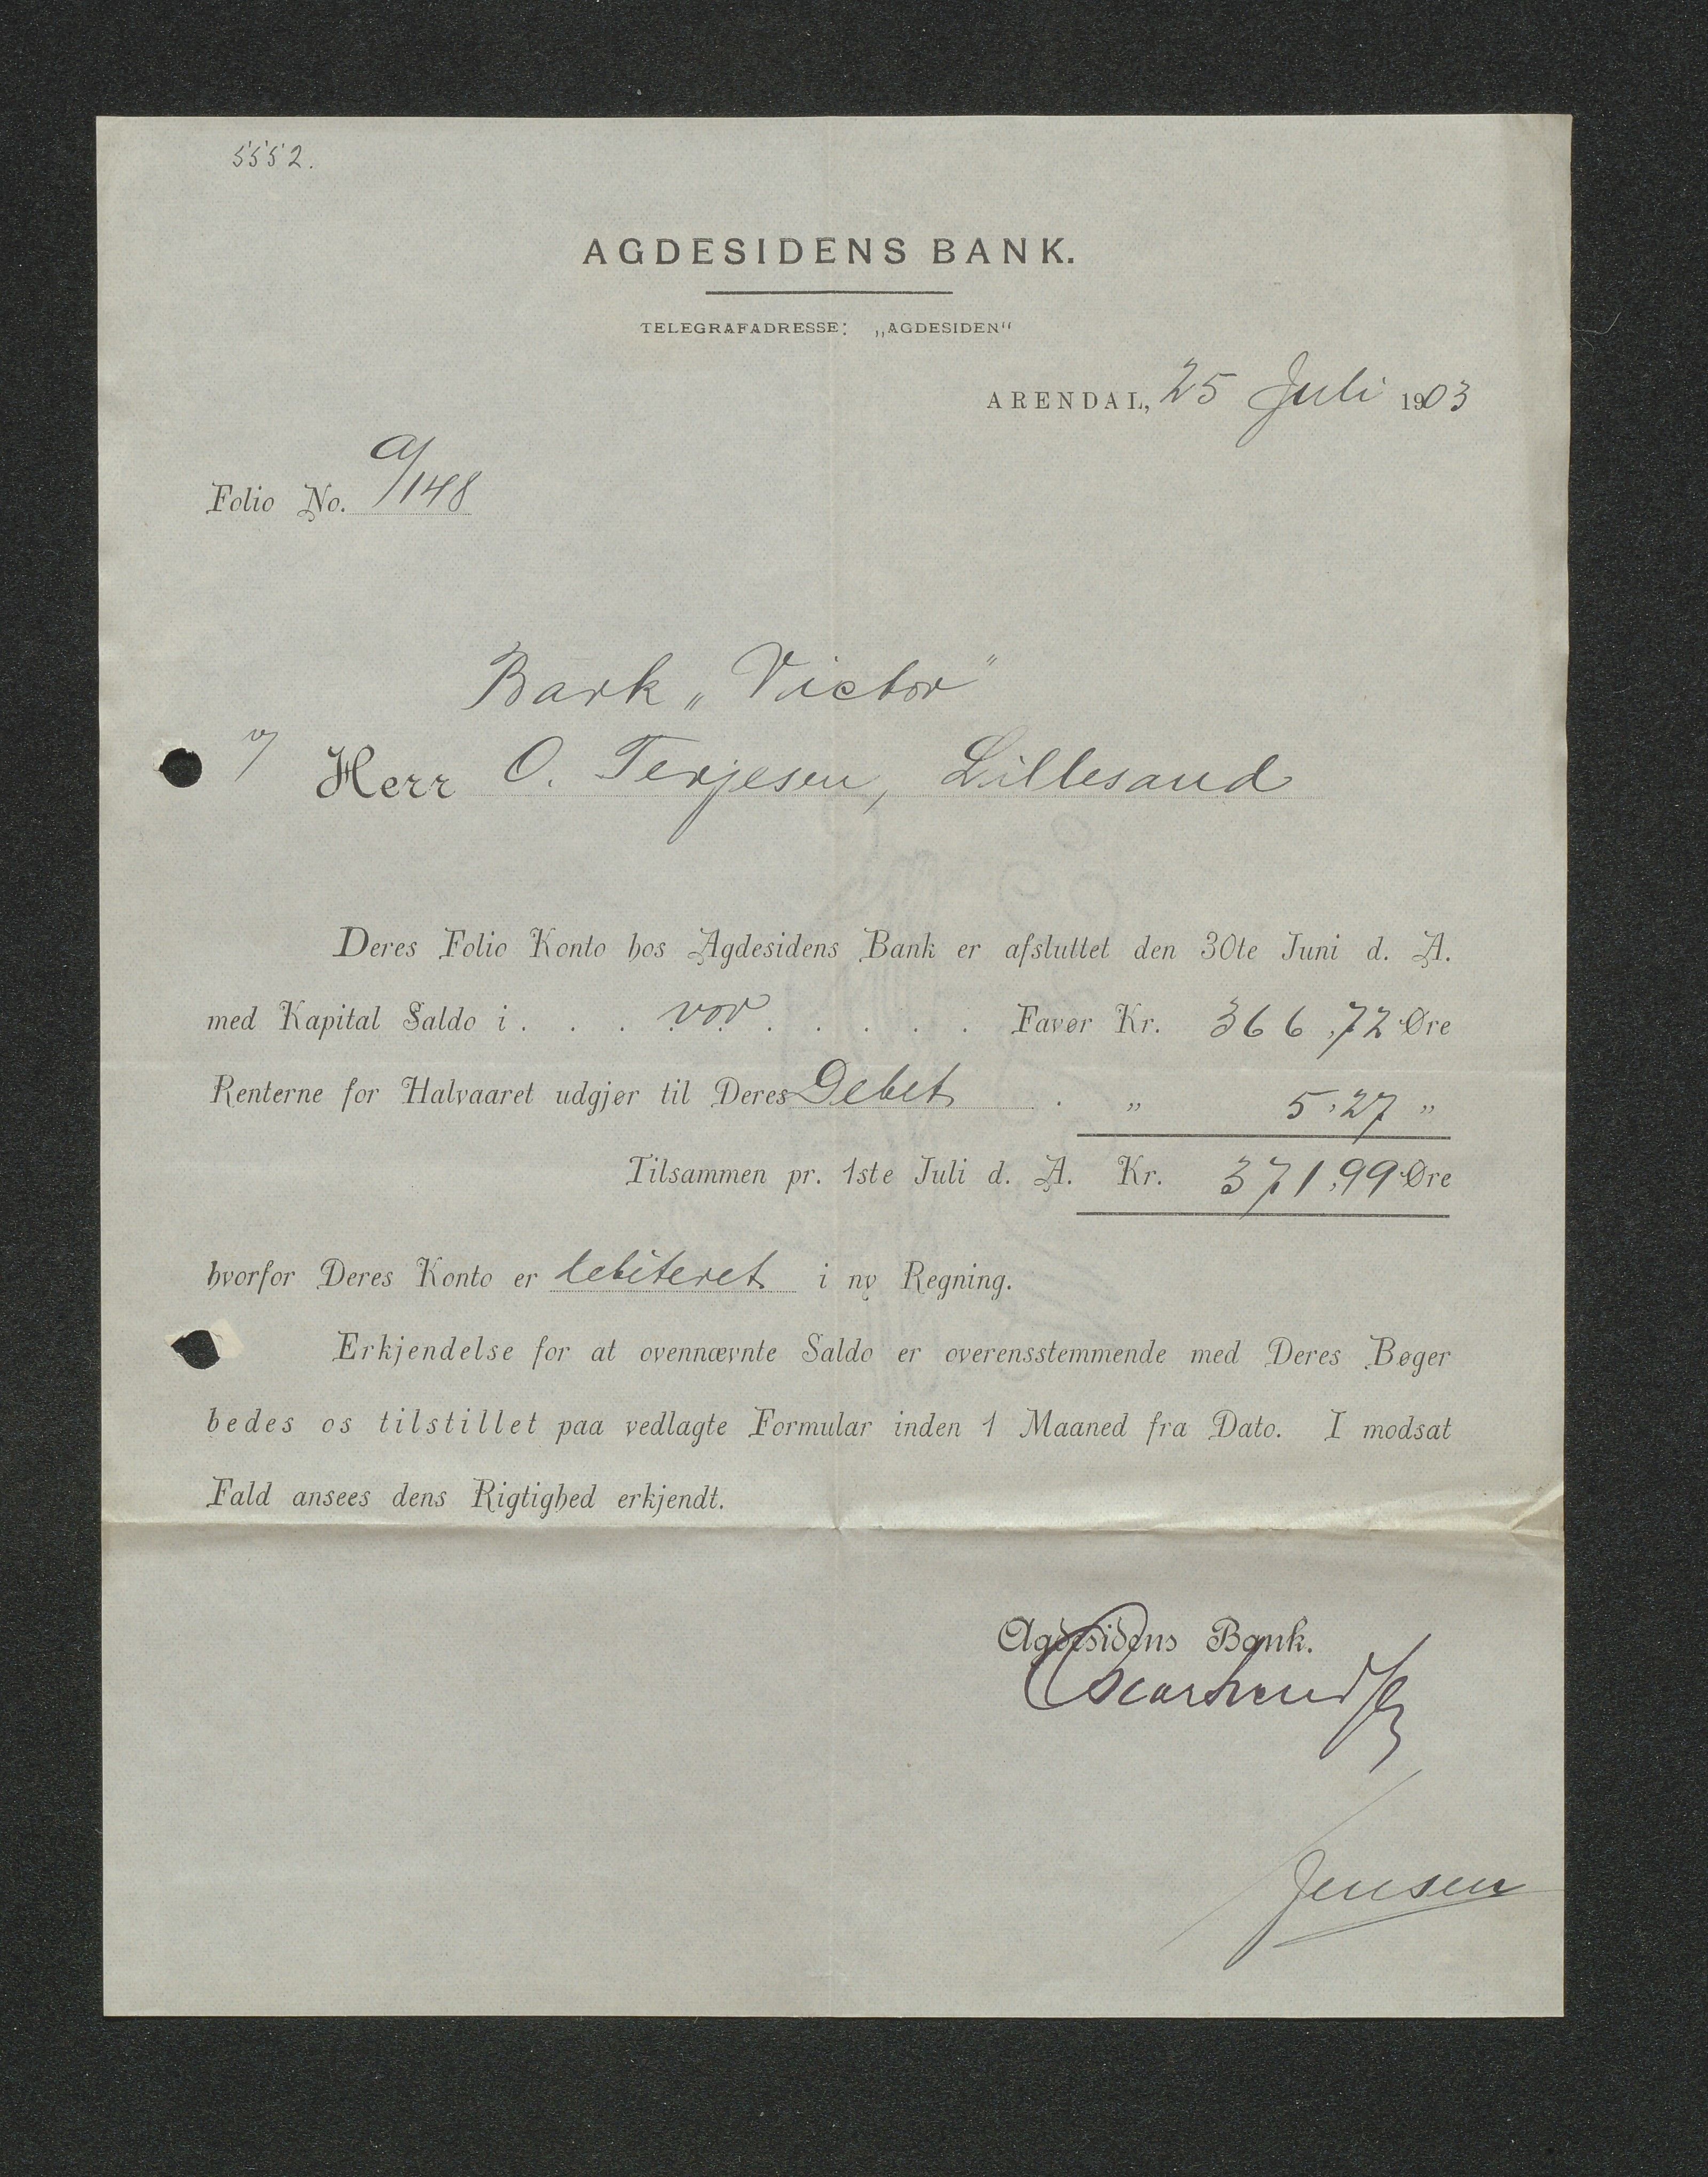 5552.
AGDESIDENS BANK.
TELEGRAFADRESSE: „AGDESIDEN"
ARENDAL, 25 Juli 1903
Folio No. a/148
Bark „Victor"
v/ Herr O. Terjesen, Lillesand
Deres Folio Konto hos Agdesidens Bank er afsluttet den 30te Juni d. A.
med Kapital Saldo i . . . vor . . . . . Favør Kr. 366,72 Øre
Renterne for Halvaaret udgjør til Deres Debet . „ 5,27 „
Tilsammen pr. 1ste Juli d. A. Kr. 371,99 Øre
hvorfor Deres Konto er debiteret i ny Regning.
Erkjendelse for at ovennævnte Saldo er overensstemmende med Deres Bøger
bedes os tilstillet paa vedlagte Formular inden 1 Maaned fra Dato. I modsat
Fald ansees dens Rigtighed erkjendt.
Agdesidens Bank.
Jensen